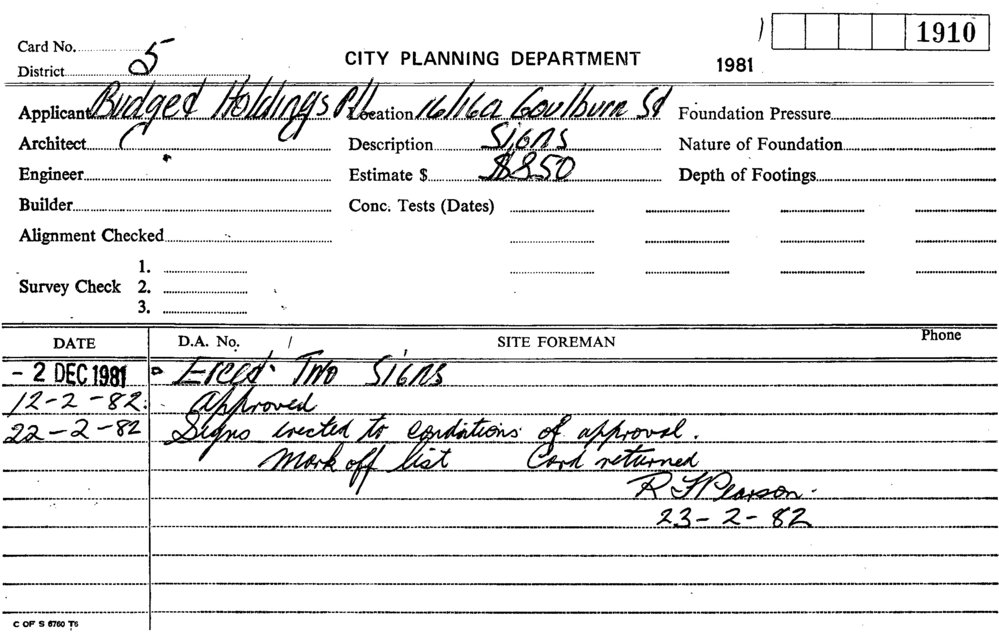 1910
Card No. 5
District
CITY PLANNING DEPARTMENT 1981
Applicant Budged Holdings P/L Location 16/16a Goulburn St Foundation Pressure
Architect Description Signs Nature of Foundation
Engineer Estimate $ $850 Depth of Footings
Builder Conc. Tests (Dates)
Alignment Checked
1.
Survey Check 2.
3.
DATE D.A. No. / SITE FOREMAN Phone
- 2 DEC 1981 Erect Two Signs
12-2-82. Approved
22-2-82 Signs erected to conditions of approval.
Mark off list Card returned
R F Pearson.
23-2-82
C OF S 6760 T6